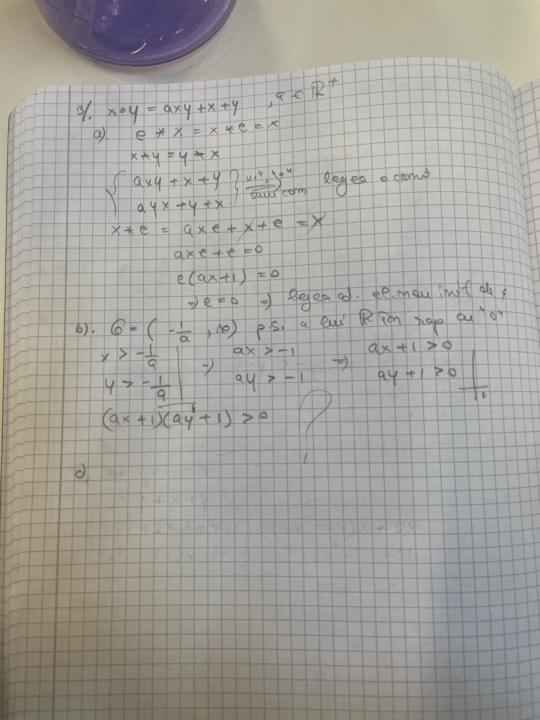 3/. x∘y = axy + x + y , a ∈ ℝ⁺
a). e * x = x * e = x
x * y = y * x
{ axy + x + y
{ ayx + y + x } com legea e com
x * e = axe + x + e = x
axe + e = 0
e(ax+1) = 0
⇒ e = 0 ⇒ legea ad. el. neu
b). G = (-1/a, ∞) p.s. a lui ℝ în rap cu "∘"
x > -1/a | ⇒ ax > -1 ⇒ ax + 1 > 0
y > -1/a | ay > -1 ay + 1 > 0
(ax + 1)(ay + 1) > 0 ?
c)